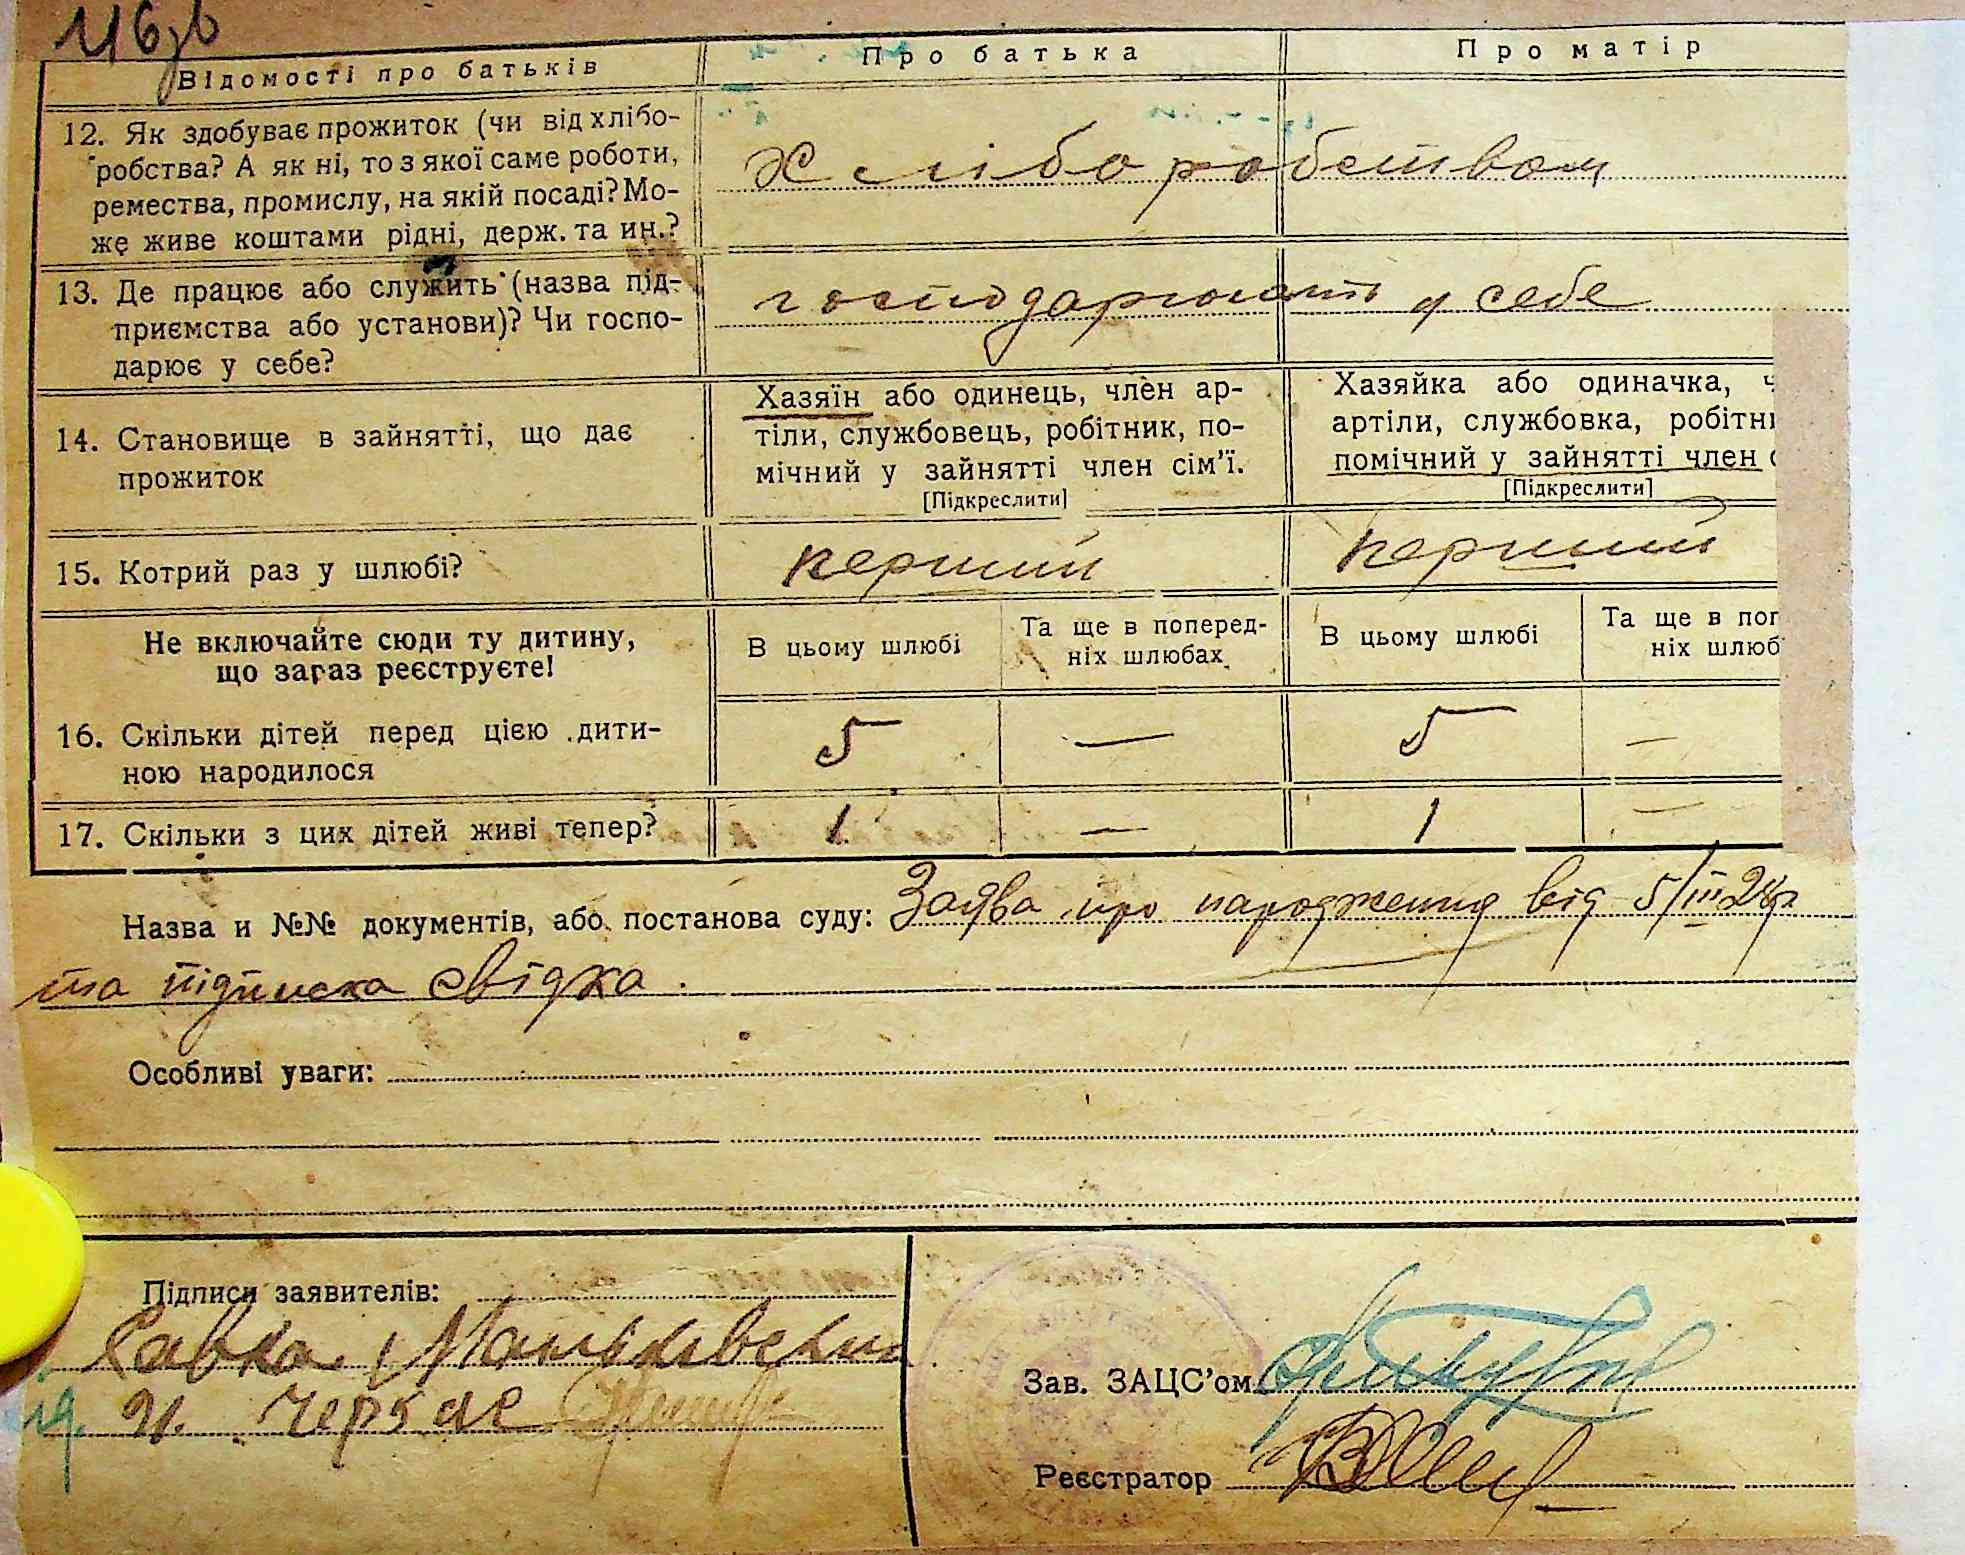 Відомості про батьків
Про батька
Про матір
12. Як здобуває прожиток (чи від хлібо-
робства? А як ні, то з якої саме роботи,
ремества, промислу, на якій посаді? Мо-
же живе коштами рідні, держ. та ин.?
Хліборобством
13. Де працює або служить (назва під-
приємства або установи)? Чи госпо-
дарює у себе?
господарюють у себе
14. Становище в зайнятті, що дає
прожиток
Хазяїн або одинець, член ар-
тіли, службовець, робітник, по-
мічний у зайнятті член сім’ї.
[Підкреслити]
Хазяйка або одиначка, ч
артіли, службовка, робітн
помічний у зайнятті член
[Підкреслити]
15. Котрий раз у шлюбі?
перший
перший
Не включайте сюди ту дитину,
що зараз реєструєте!
В цьому шлюбі
Та ще в поперед-
ніх шлюбах
В цьому шлюбі
Та ще в поп
ніх шлюб
16. Скільки дітей перед цією дити-
ною народилося
5 — 5 —
17. Скільки з цих дітей живі тепер?
1 — 1 —
Назва и №№ документів, або постанова суду: Заява про народження від 5/III 24р
та підписка свідка.
Особливі уваги:
Підписи заявителів:
Савка Маньковский
Зав. ЗАЦС’ом
И. Черкас
Реєстратор